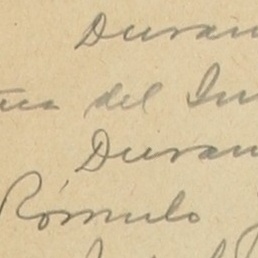 Duran
del In
Duran
Rómulo